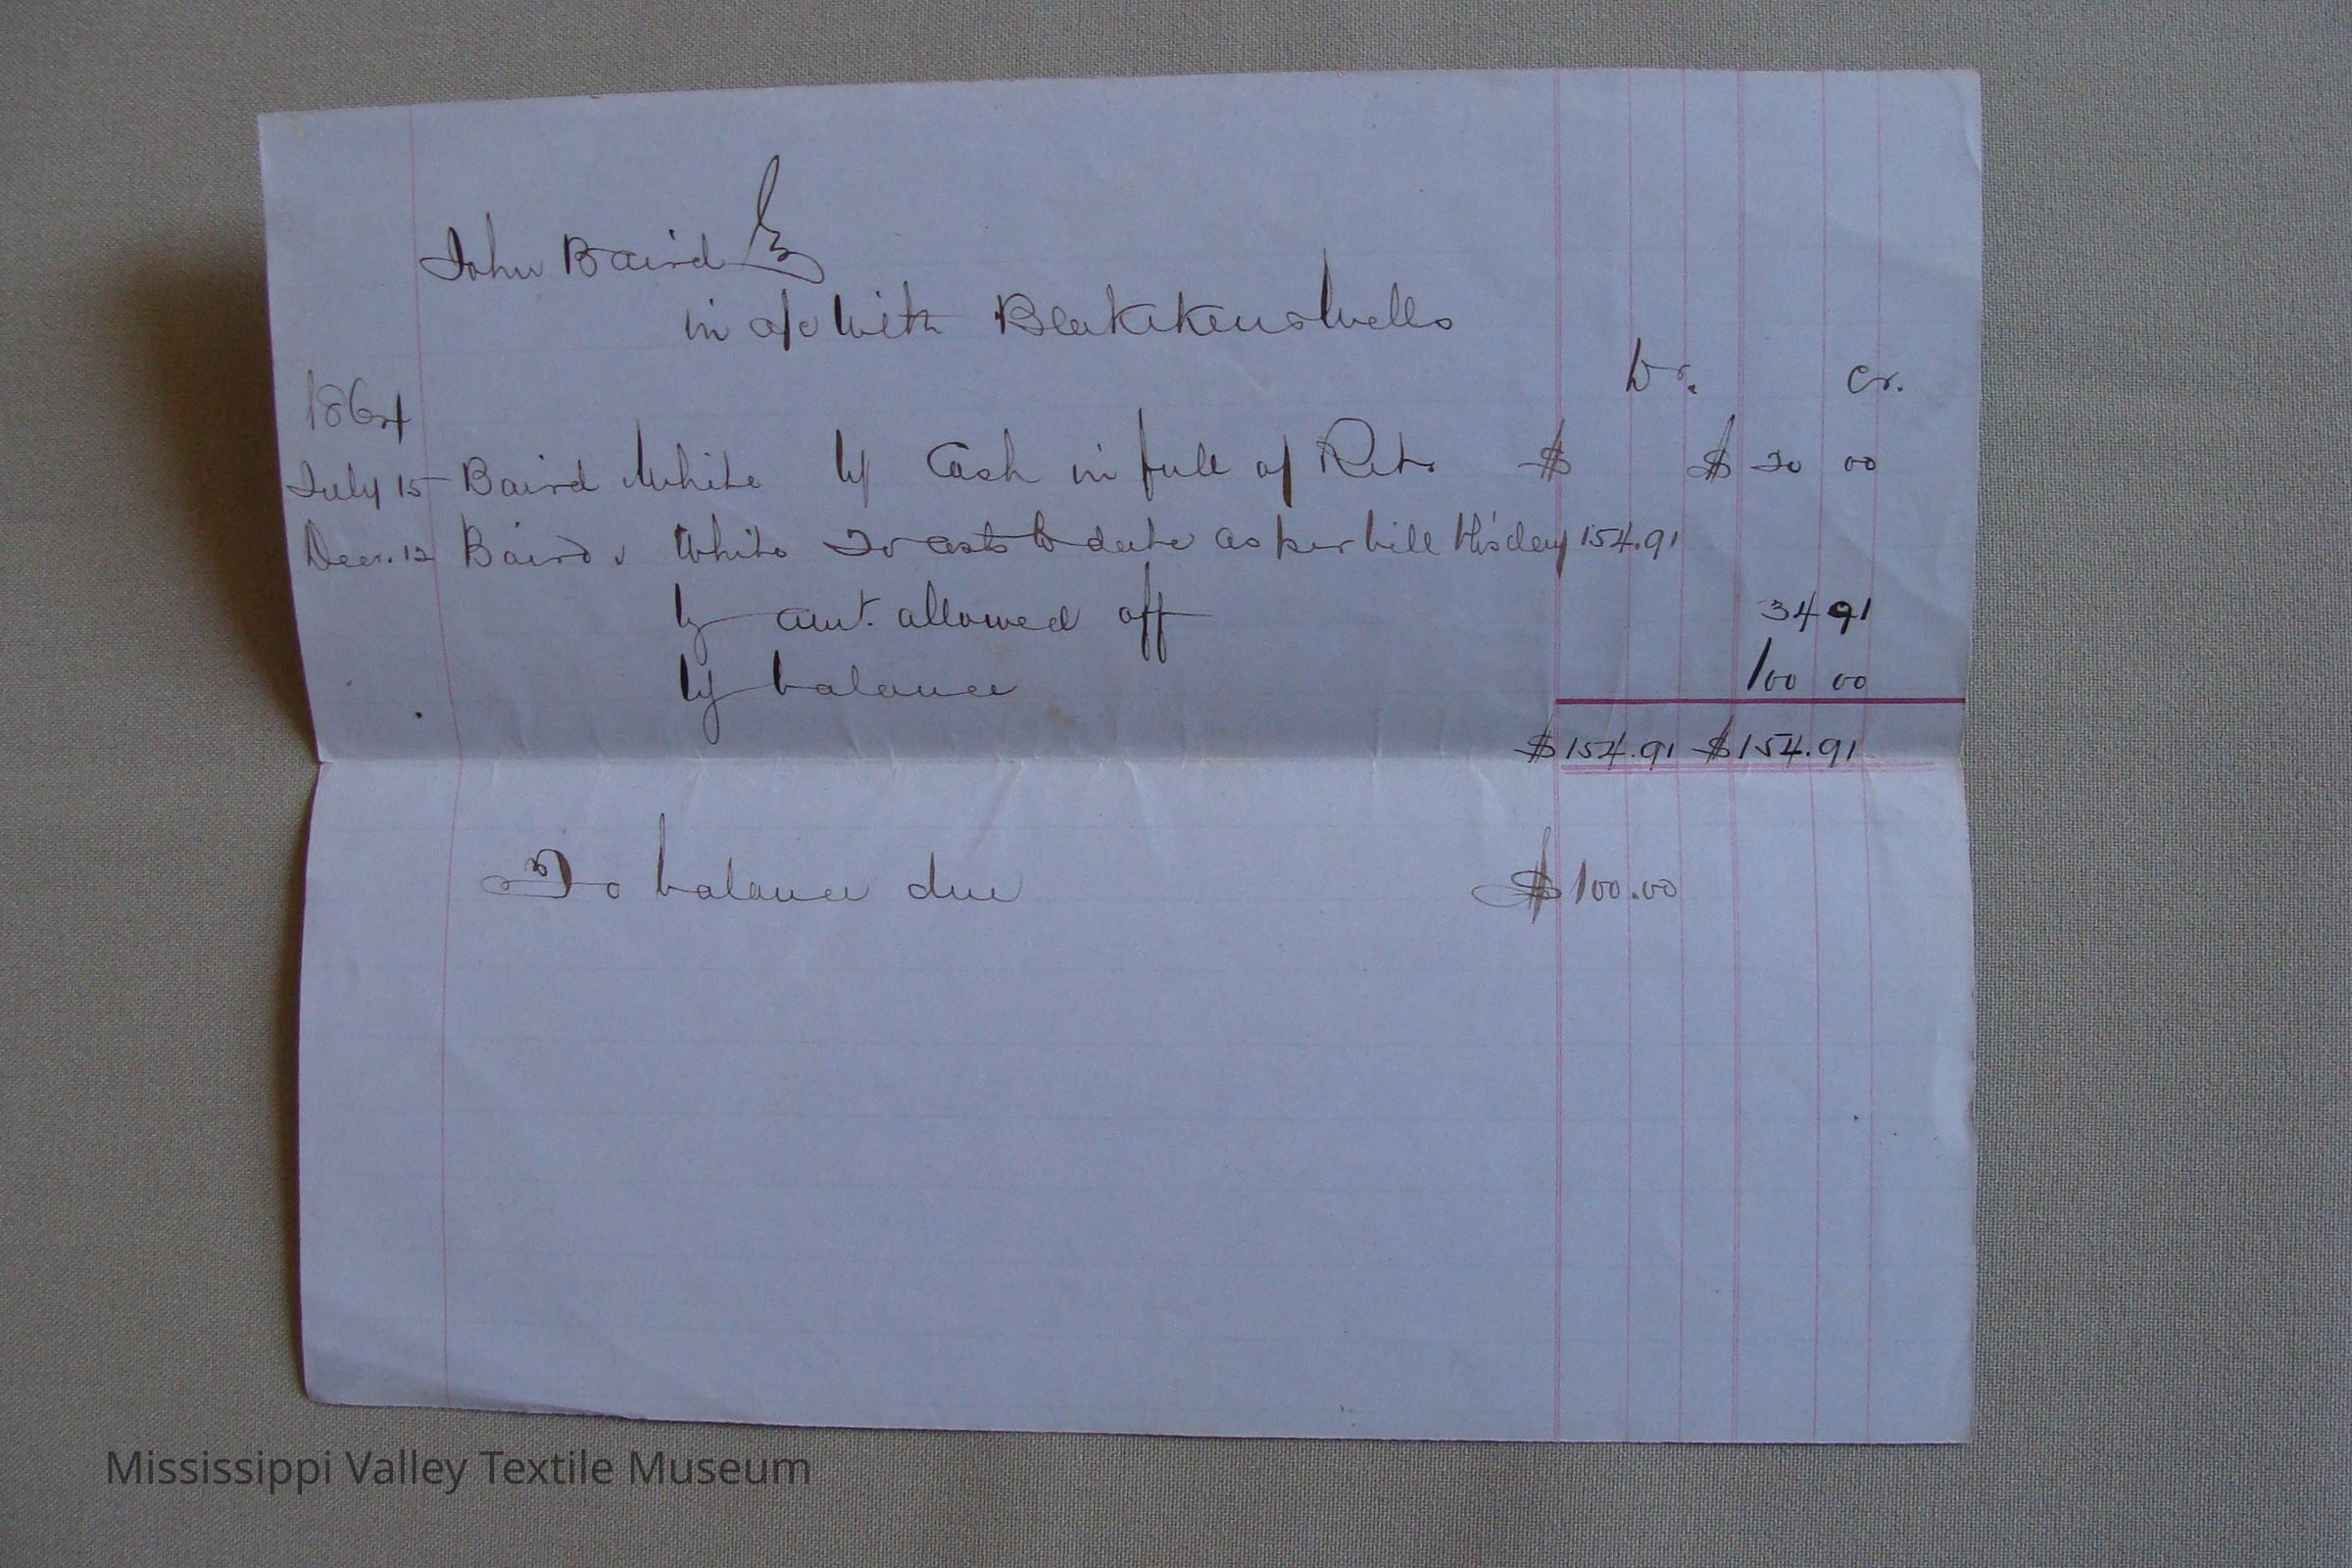 John Baird Esq
in a/c with
Dr. Cr.
1864
July 15 Baird White by Cash in full of $ $ 20 00
Dec. 12 Baird v White To costs to date as per bill this day 154.91
by amt. allowed off 34 91
by balance 100 00
$154.91 $154.91
To balance due $100.00
Mississippi Valley Textile Museum